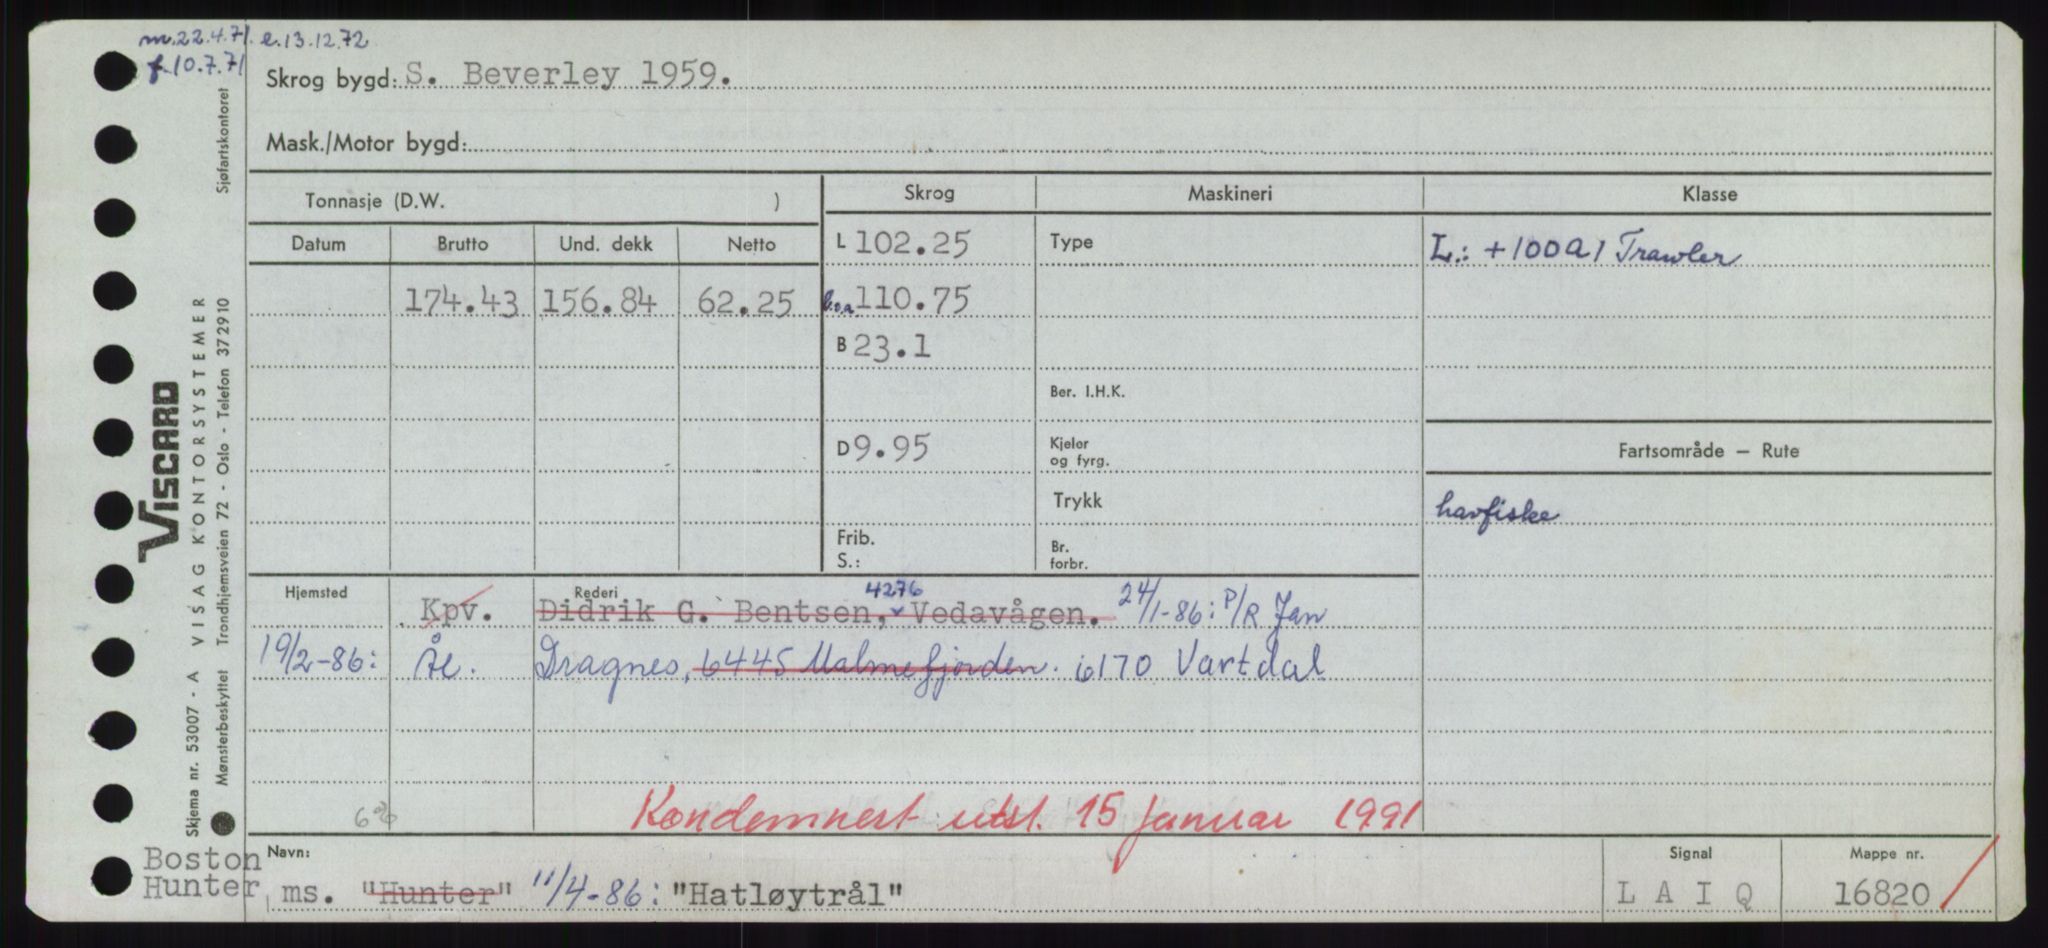 m.22.4.71. e.13.12.72
f.10.7.71
Skrog bygd: S. Beverley 1959.
Mask./Motor bygd:
Tonnasje (D.W. )
Skrog
Maskineri
Klasse
Datum
Brutto
Und. dekk
Netto
L 102.25
Type
L.: +100A1 Trawler
174.43
156.84
62.25
l.o.a. 110.75
B 23.1
Ber. I.H.K.
D 9.95
Kjeler
og fyrg.
Fartsområde – Rute
Trykk
havfiske
Frib.
S.:
Br.
forbr.
Hjemsted
Rederi
4276
Kpv. Didrik G. Bentsen, Vedavågen. 24/1-86: P/R Jan
19/2-86: Ål. Dragnes, 6445 Malmefjorden. 6170 Vartdal
Kondemnert utst. 15 januar 1991
Boston
Hunter
Navn:
ms. "Hunter" 11/4-86: "Hatløytrål"
Signal
L A I Q
Mappe nr.
16820
Sjøfartskontoret
VISCARD
VISAG KONTORSYSTEMER
Trondhjemsveien 72 - Oslo - Telefon 372910
Skjema nr. 53007 - A
Mønsterbeskyttet